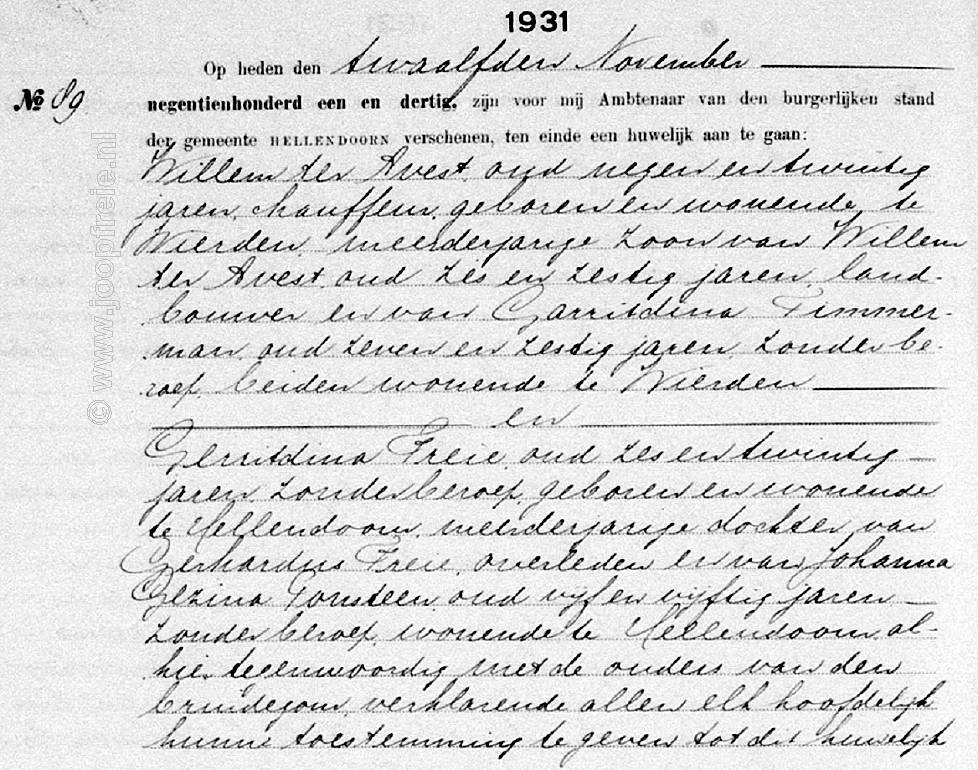 1931
Op heden den twaalfden November
№ 89.
negentienhonderd een en dertig, zijn voor mij Ambtenaar van den burgerlijken stand
der gemeente HELLENDOORN verschenen, ten einde een huwelijk aan te gaan:
Willem ter Avest, oud negen en twintig
jaren, chauffeur, geboren en wonende te
Wierden, meerderjarige zoon van Willem
ter Avest, oud zes en zestig jaren, land-
bouwer en van Garritdina Timmer-
man, oud zeven en zestig jaren, zonder be-
roep, beiden wonende te Wierden
en
Gerritdina Freie oud zes en twintig
jaren, zonder beroep, geboren en wonende
te Hellendoorn, meerderjarige dochter van
Gerhardus Freie, overleden en van Johanna
Gezina Fonsteen oud vijf en vijftig jaren
zonder beroep, wonende te Hellendoorn, al-
hier tegenwoordig met de ouders van den
bruidegom, verklarende allen elk hoofdelijk
hunne toestemming te geven tot dit huwelijk
© www.joopfreie.nl